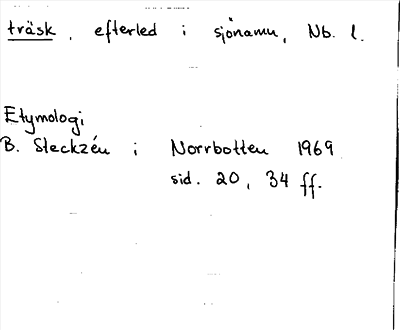 träsk, efterled i sjönamn, Nb. l.
Etymologi
B. Steckzén i Norrbotten 1969
sid. 20, 34 ff.